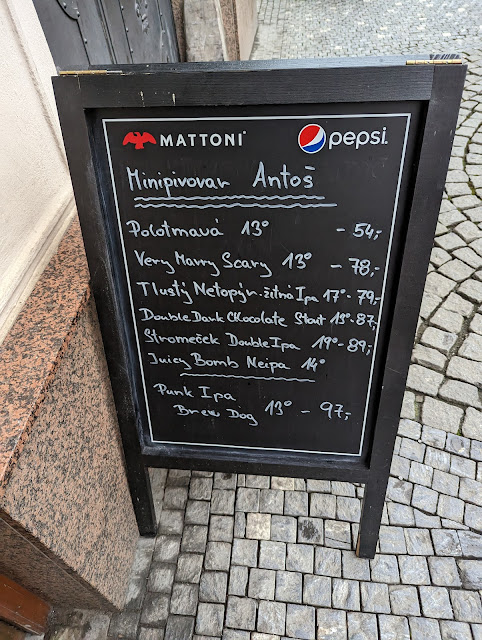 MATTONI pepsi.
Minipivovar Antoš
Polotmavá 13° - 54,-
Very Merry Scary 13° - 78,-
Tlustý Netopýr-žitná Ipa 17° - 79,-
Double Dark Chocolate Stout 19° - 87,-
Stromeček Double Ipa 19° - 89,-
Juicy Bomb Neipa 14°
Punk Ipa
Brew Dog 13° - 97,-